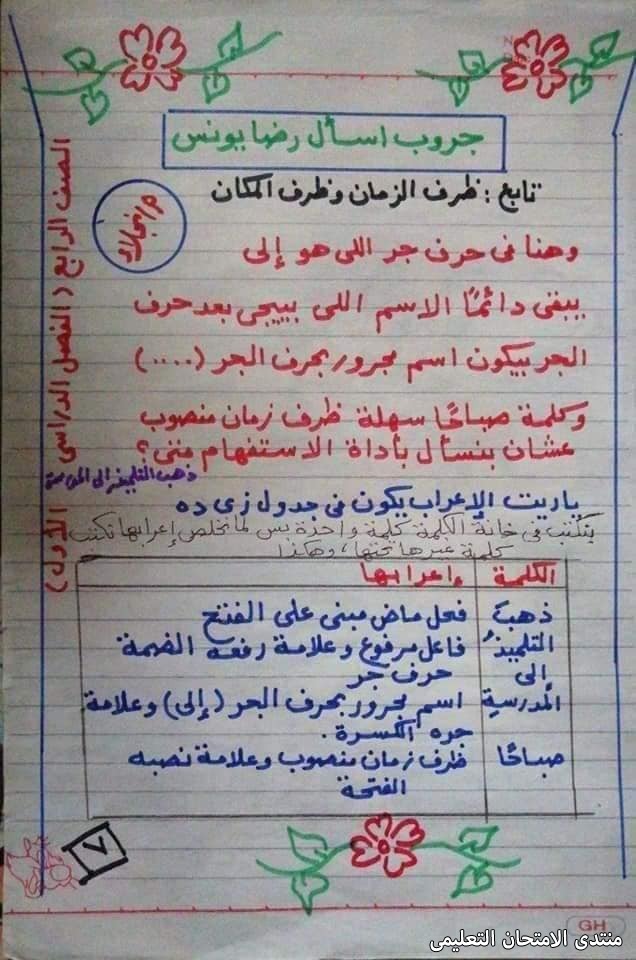 جروب اسأل رضا يونس
تابع : ظرف الزمان وظرف المكان
م/نجلاء
الصف الرابع ( الفصل الدراسى الأول )
وهنا فى حرف جر اللى هو إلى
يبقى دائمًا الاسم اللى بييجى بعد حرف
الجر بيكون اسم مجرور بحرف الجر (....)
وكلمة صباحًا سهلة ظرف زمان منصوب
عشان بنسأل بأداة الاستفهام متى ؟
ذهب التلميذ إلى المدرسة
ياريت الإعراب يكون فى جدول زى ده
يتكتب فى خانة الكلمة كلمة واحدة بس لما نخلص إعرابها نكتب
كلمة غيرها تحتها ، وهكذا
الكلمة إعرابها
ذهبَ فعل ماض مبنى على الفتح
التلميذُ فاعل مرفوع وعلامة رفعه الضمة
إلى حرف جر
المدرسةِ اسم مجرور بحرف الجر (إلى) وعلامة
جره الكسرة .
صباحًا ظرف زمان منصوب وعلامة نصبه
الفتحة
٧
GH
منتدى الامتحان التعليمى